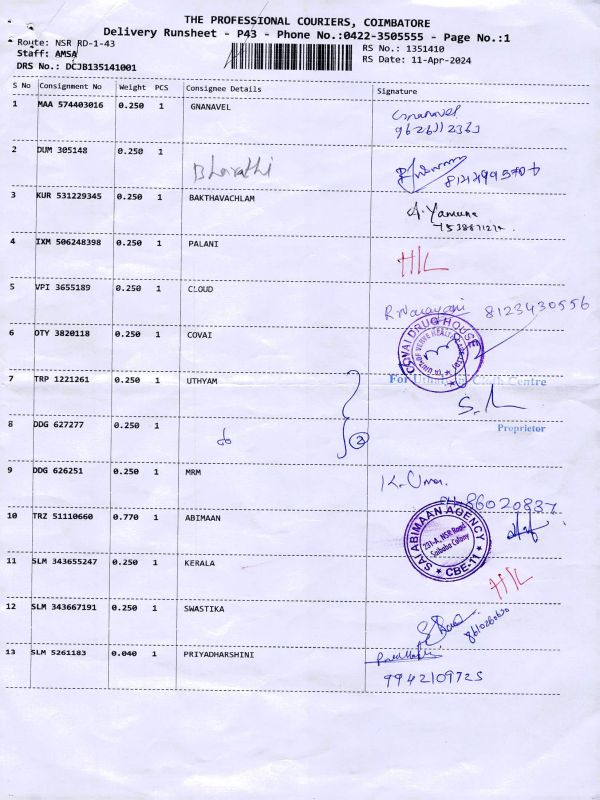 THE PROFESSIONAL COURIERS, COIMBATORE
Delivery Runsheet - P43 - Phone No.:0422-3505555 - Page No.:1
Route: NSR RD-1-43
RS No.: 1351410
Staff: AMSA
RS Date: 11-Apr-2024
DRS No.: DCJB135141001
S No Consignment No Weight PCS Consignee Details Signature
1 MAA 574403016 0.250 1 GNANAVEL Gnanavel
2 DUM 305148 0.250 1 Bharathi
3 KUR 531229345 0.250 1 BAKTHAVACHLAM A. Yamuna
4 IXM 506248398 0.250 1 PALANI H/L
5 VPI 3655189 0.250 1 CLOUD R. Narayani 8123430556
6 OTY 3820118 0.250 1 COVAI COVAI DRUG HOUSE
7 TRP 1221261 0.250 1 UTHYAM For Cloth Centre
8 DDG 627277 0.250 1 do 2 Proprietor
9 DDG 626251 0.250 1 MRM K. Uma
PH 86020837
10 TRZ 51110660 0.770 1 ABIMAAN SAI ABIMAAN AGENCY
231-A, NSR Road
Saibaba Colony
CBE-11
11 SLM 343655247 0.250 1 KERALA H/L
12 SLM 343667191 0.250 1 SWASTIKA
13 SLM 5261183 0.040 1 PRIYADHARSHINI
9942109725